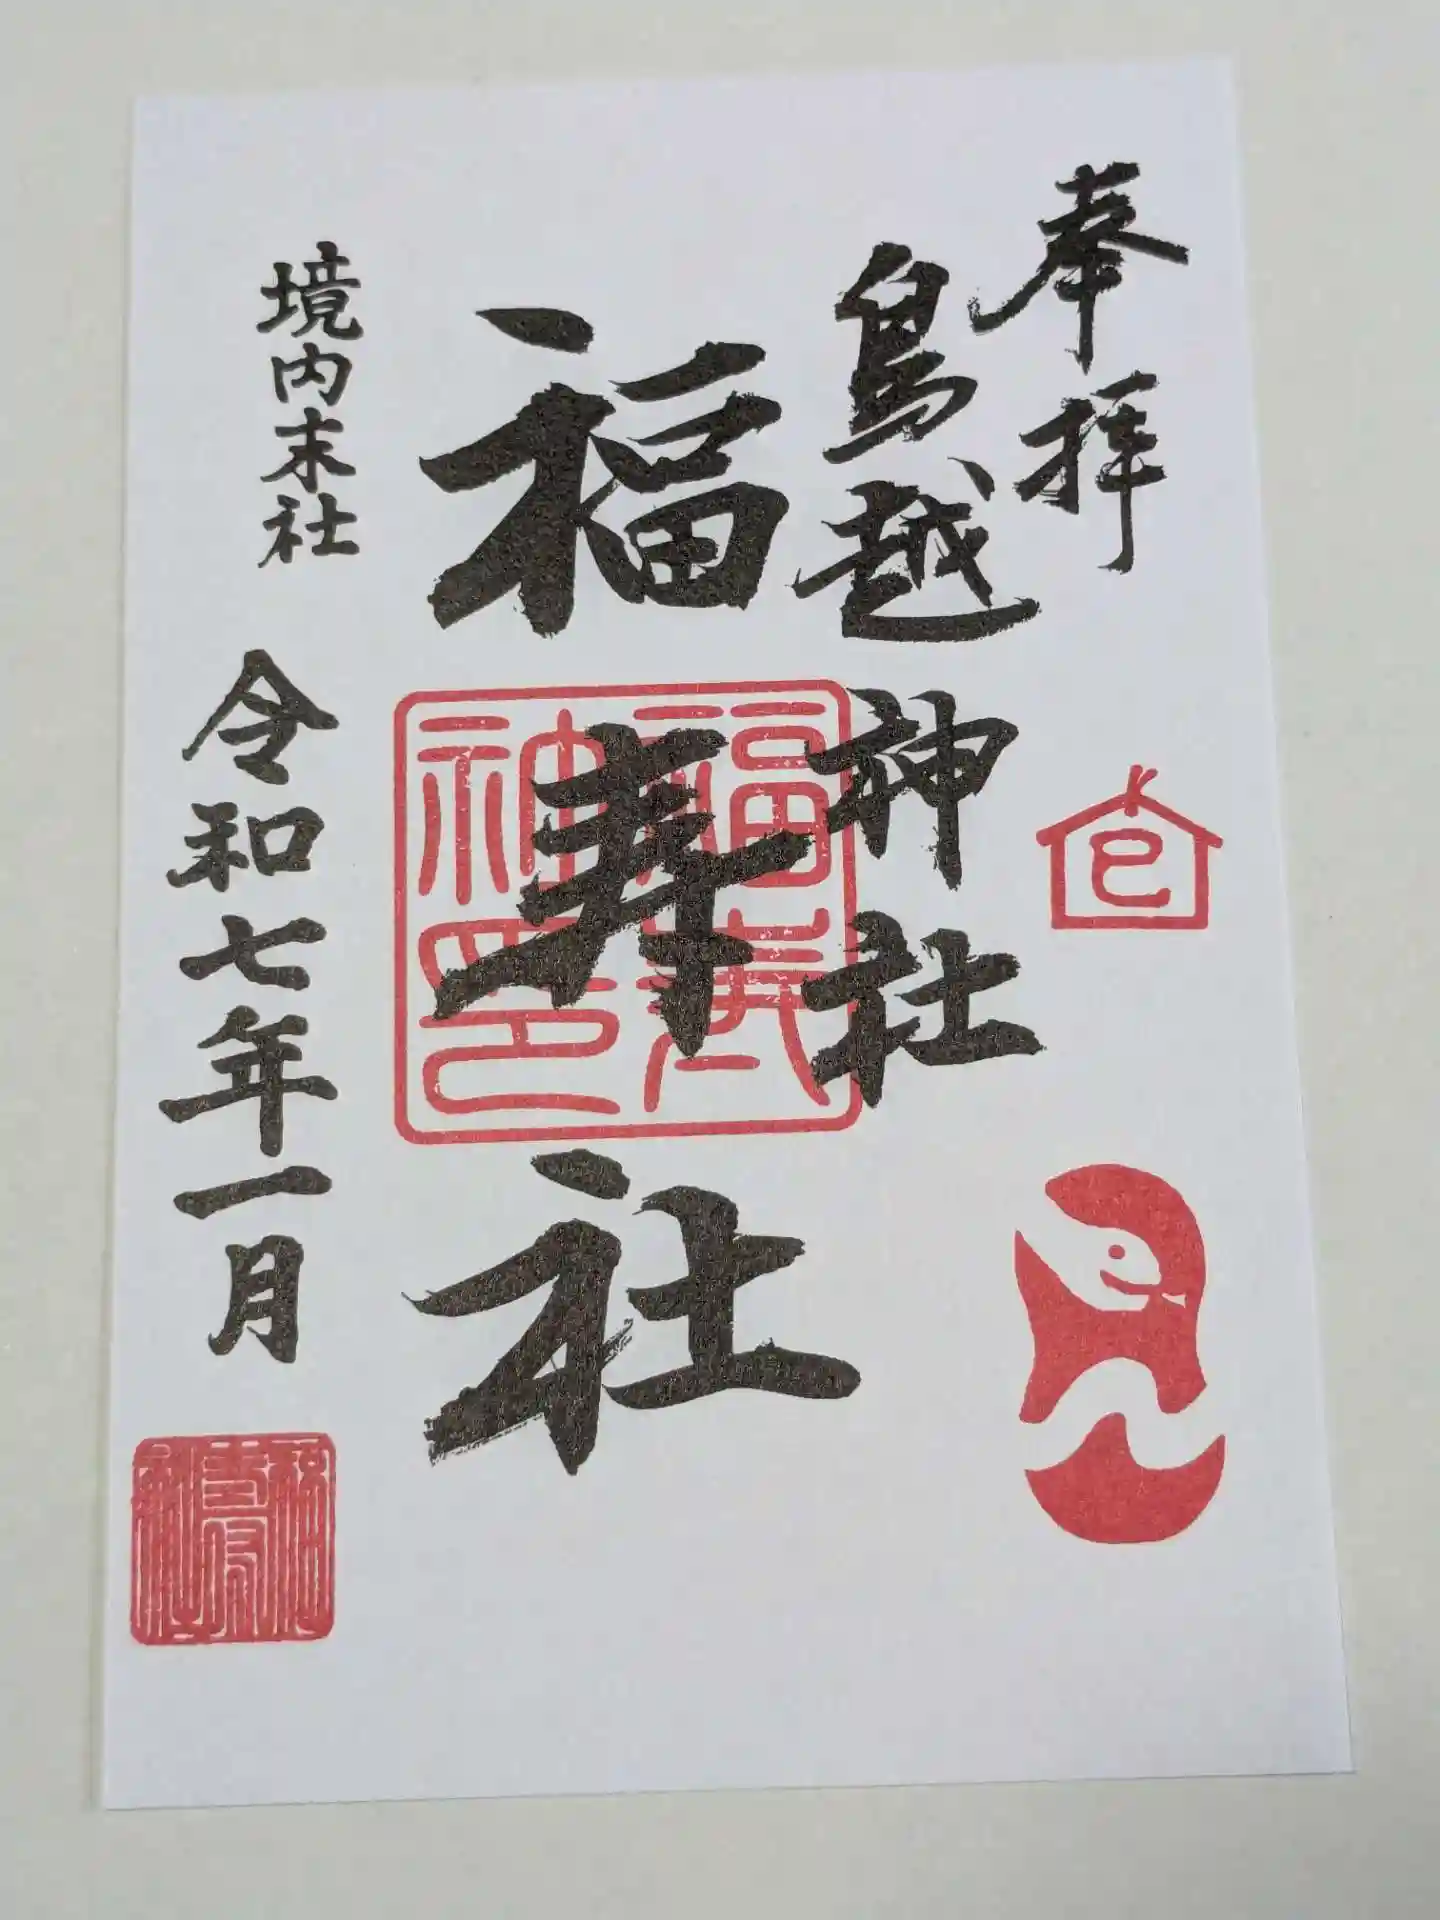 奉拝
鳥越神社
福寿社
境内末社
令和七年一月
巳
福寿神印